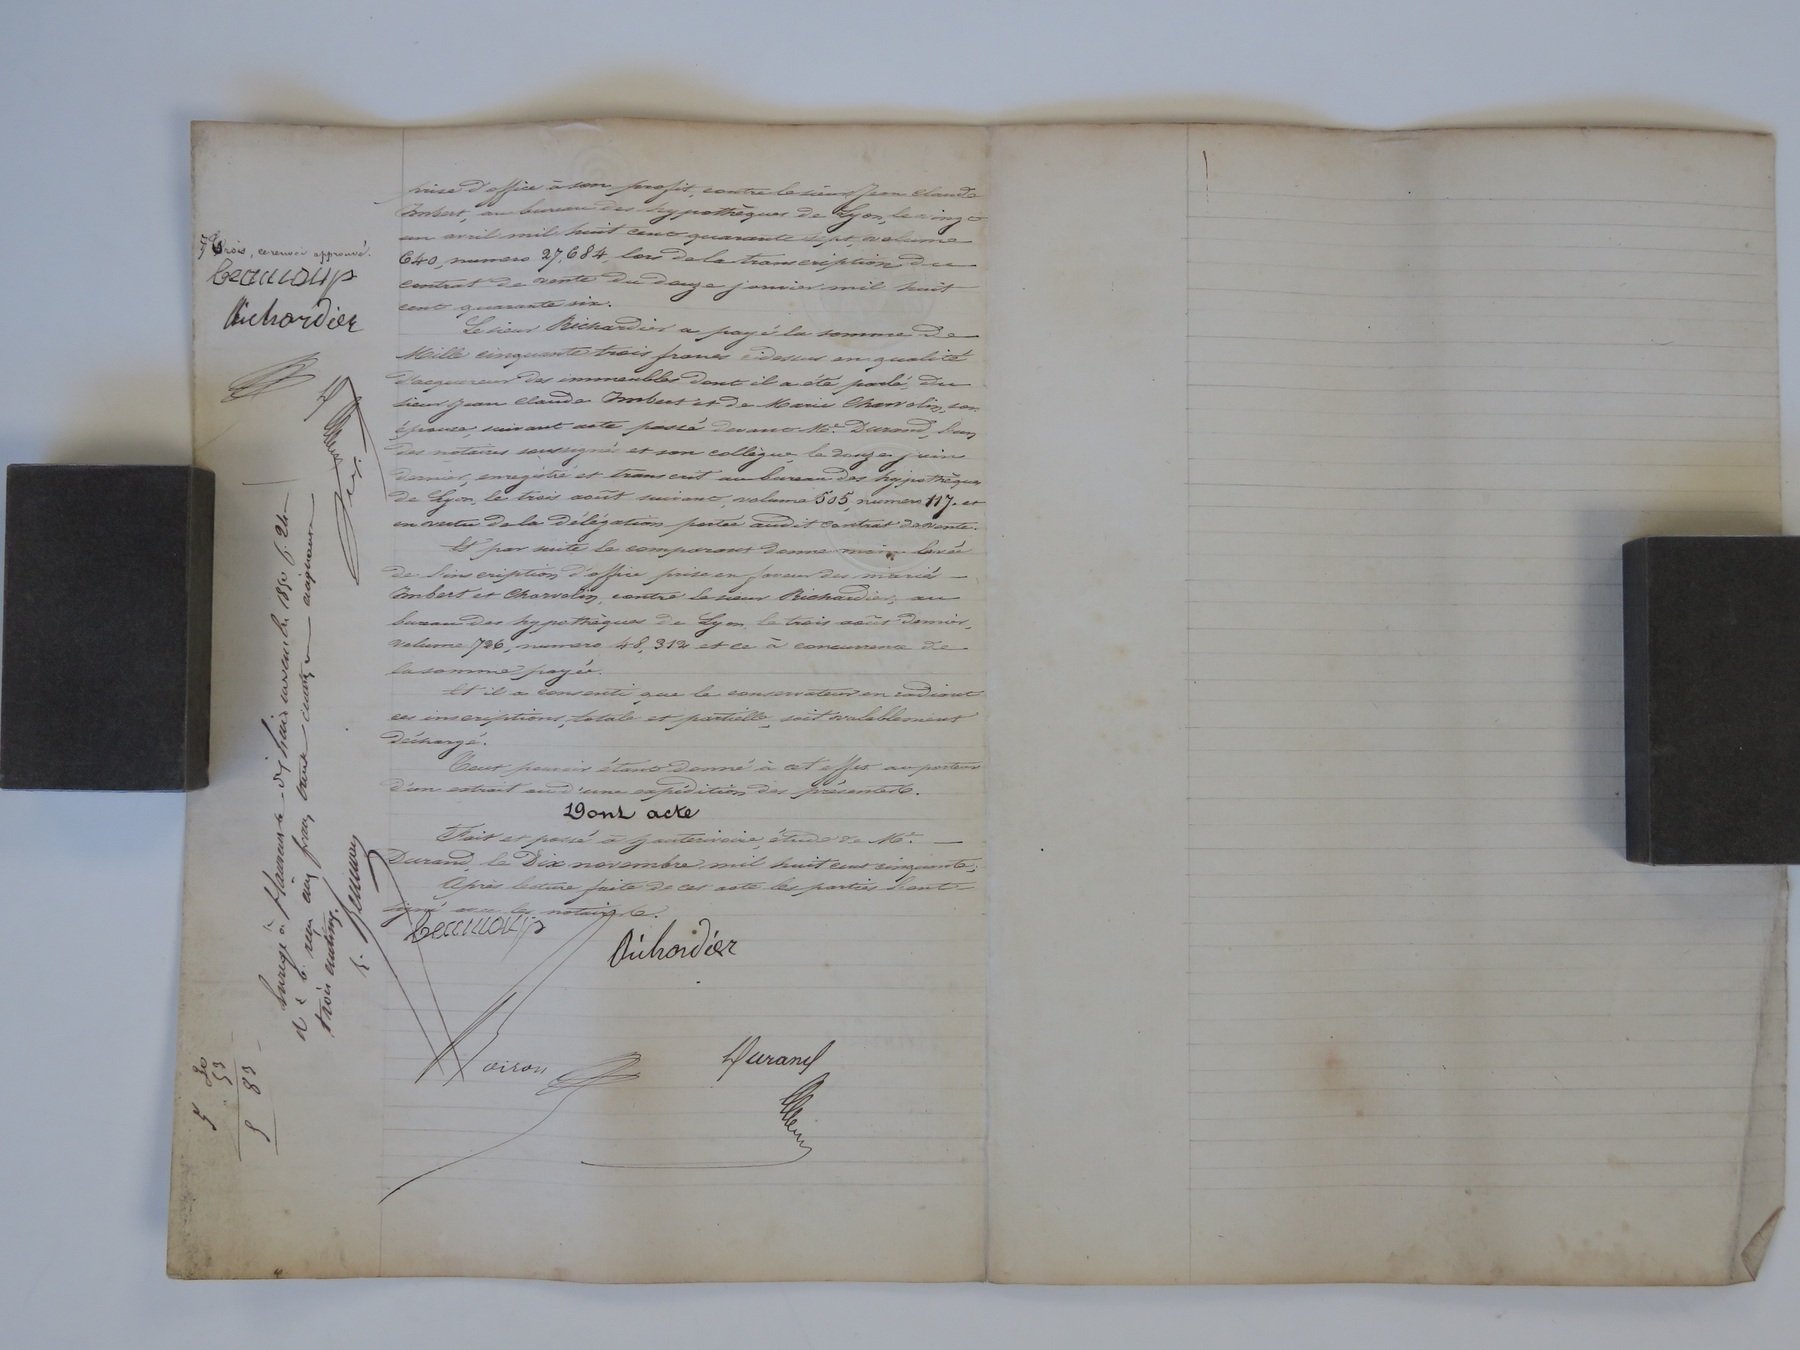 prise d'office à son profit, contre le sieur Jean Claude
Imbert, au bureau des hypothèques de Lyon, le vingt
un avril mil huit cent quarante sept, volume
640, numero 27,684, lors de la transcription du
contrat de vente du douze janvier mil huit
cent quarante six.
Le sieur Richardier a payé la somme de
Mille cinquante trois francs cidessus en qualité
d'acquereur des immeubles dont il a été parlé, du
sieur Jean Claude Imbert et de Marie Charvolin, son
épouse, suivant acte passé devant Me. Durand, l'un
des notaires soussignés et son collègue, le douze juin
dernier, enregistré et transcrit au bureau des hypothèques
de Lyon, le trois août suivant, volume 505, numero 117. et
en vertu de la délégation portée audit contrat de vente.
Et par suite le comparant donne main levée
de l'inscription d'office prise en faveur des mariés
Imbert et Charvolin, contre le sieur Richardier, au
bureau des hypothèques de Lyon, le trois août dernier,
volume 726, numero 48,312 et ce à concurrence de
la somme payée.
Et il a consenti que le conservateur en radiant
ces inscriptions, totale et partielle, soit valablement
déchargé.
Tout pouvoir étant donné à cet effet au porteur
d'un extrait ou d'une expédition des présentes.
Dont acte
Fait et passé à étude de Me.
Durand, le Dix novembre mil huit cent cinquante.
Après lecture faite de cet acte les parties l'ont
signé avec les notaires.
Beaucoup
Richardier
Durand
trois, approuvé.
Beaucoup
Richardier
D
Enregé à dix huit novembre 1850 f. 24
reçu cinq francs trente centimes
trois centimes.
5 30
53
5 83